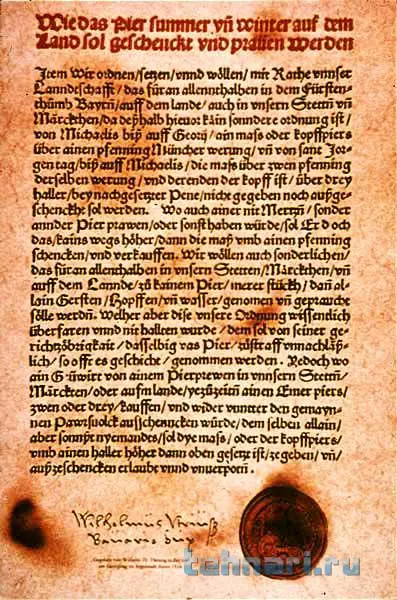 Wie das Pier summer vñ winter auf dem
Land sol geschenckt vnd prauen werden
Item Wir ordnen/setzen/vnnd wöllen/mit Rathe vnnser
Lanndtschafft/das für an allennthalben in dem Fürsten-
thůmb Bayrñ/auff dem lande/auch in vnsern Stettñ vñ
Märckthen/da deßhalb hieuor kain sonndere ordnung ist/
von Michaelis biß auff Georij/ain mass oder kopffpiers
über ainen pfenning Müncher werung/vñ von sant Jor-
gentag/biß auff Michaelis/die mass über zwen pfenning
derselben werung/vnd derenden der kopff ist/über drey
haller/bey nachgesetzter Pene/nicht gegeben noch außge-
schenckht sol werden. Wo auch ainer nit Mertzñ/sonder
annder Pier prawen/oder sonst haben würde/sol Er doch
das/kains wegs höher/dann die maß vmb ainen pfenning
schencken/vnd verkauffen. Wir wöllen auch sonderlichen/
das für an allenthalben in vnsern Stetten/Märckthen/vñ
auff dem Lannde/zů kainem Pier/merer stückh/dañ al-
lain Gersten/Hopffen/vñ wasser/genomen vñ gepraucht
sölle werdñ. Welher aber dise vnsere Ordnung wissendlich
überfaren vnnd nit hallten wurde/dem sol von seiner ge-
richtzöbrigkait/dasselbig vas Pier/zůstraff vnnachläß-
lich/so offt es geschicht/genommen werden. Yedoch wo
ain Gůwirt von ainem Pierprewen in vnnsern Stettñ/
Märckten/oder aufm lande/yezůzeitñ ainen Emer piers/
zwen oder drey/kauffen/vnd wider vnnter den gemayn-
nen Pawrsuolck ausschencken würde/dem selben allain/
aber sonnst nyemandes/sol dye mass/oder der kopffpiers/
vmb ainen haller höher dann oben gesetzt ist/ze geben/vñ/
außzeschencken erlaubt vnd vnuerpotñ.
Wilhelmus
tehnari.ru